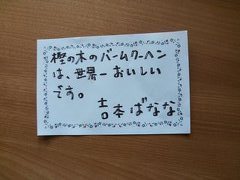 樫の木のバームクーヘン
は、世界一おいしい
です。
吉本ばなな